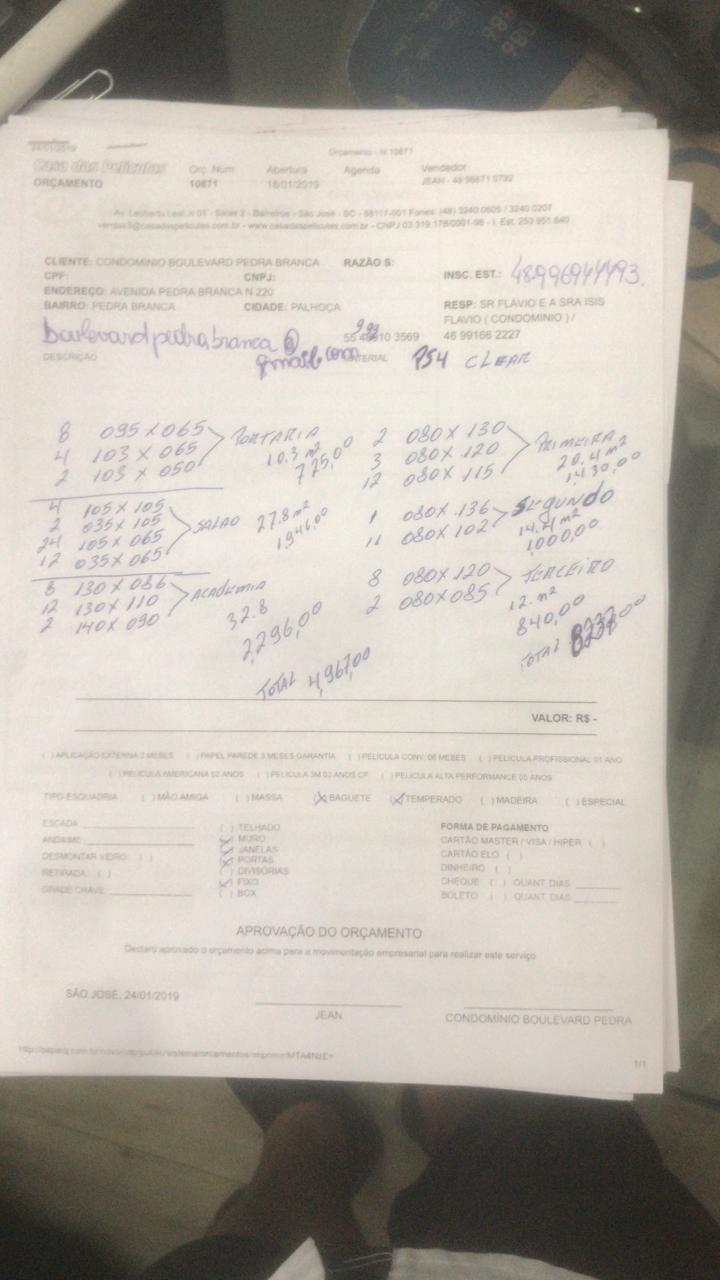 24/01/2019
Orçamento - N 10871
Casa das Películas
Orç. Núm
Abertura
Agenda
Vendedor
ORÇAMENTO
10871
18/01/2019
JEAN - 48 98871 0792
Av. Leoberto Leal, n 01 - Salas 2 - Barreiros - São José - SC - 88117-001 Fones: (48) 3240 0605 / 3240 0207
www.casadaspeliculas.com.br
CLIENTE: CONDOMINIO BOULEVARD PEDRA BRANCA
RAZÃO S:
CPF:
CNPJ:
INSC. EST.: 48.996944493.
ENDEREÇO: AVENIDA PEDRA BRANCA N 220
BAIRRO: PEDRA BRANCA
CIDADE: PALHOÇA
RESP: SR FLAVIO E A SRA ISIS
FLAVIO ( CONDOMINIO ) /
48 99166 2227
boulevardpedrabranca@
gmail.com
DESCRIÇÃO
MATERIAL
PS4 CLEAR
8 095 X 065
4 103 X 065
2 103 X 050
PORTARIA
10.3 m²
725,00
4 105 X 105
2 035 X 105
24 105 X 065
12 035 X 065
SALAO
27.8 m²
1,946,00
8 130 X 086
12 130 X 110
2 140 X 090
ACADEMIA
32.8
2,296,00
TOTAL 4,967,00
2 080 X 130
3 080 X 120
12 080 X 115
PRIMEIRA
20.4 m²
1,430,00
1 080 X 136
11 080 X 102
SEGUNDO
14.4 m²
1,000,00
8 080 X 120
2 080 X 085
TERCEIRO
12. m²
840,00
TOTAL
VALOR: R$ -
( ) APLICAÇÃO EXTERNA 3 MESES ( ) PAPEL PAREDE 3 MESES GARANTIA ( ) PELICULA CONV. 06 MESES ( ) PELICULA PROFISSIONAL 01 ANO
( ) PELICULA AMERICANA 02 ANOS ( ) PELICULA 3M 03 ANOS CP ( ) PELICULA ALTA PERFORMANCE 05 ANOS
TIPO ESQUADRIA ( ) MÃO AMIGA ( ) MASSA (X) BAGUETE (X) TEMPERADO ( ) MADEIRA ( ) ESPECIAL
ESCADA
ANDAIME
DESMONTAR VIDRO: ( )
RETIRADA: ( )
GRADE CHAVE:
( ) TELHADO
(X) MURO
(X) JANELAS
(X) PORTAS
( ) DIVISÓRIAS
(X) FIXO
( ) BOX
FORMA DE PAGAMENTO
CARTÃO MASTER / VISA / HIPER ( )
CARTÃO ELO ( )
DINHEIRO ( )
CHEQUE ( ) QUANT DIAS
BOLETO ( ) QUANT DIAS
APROVAÇÃO DO ORÇAMENTO
Declaro aprovado o orçamento acima para a movimentação empresarial para realizar este serviço
SÃO JOSÉ: 24/01/2019
JEAN
CONDOMÍNIO BOULEVARD PEDRA
1/1